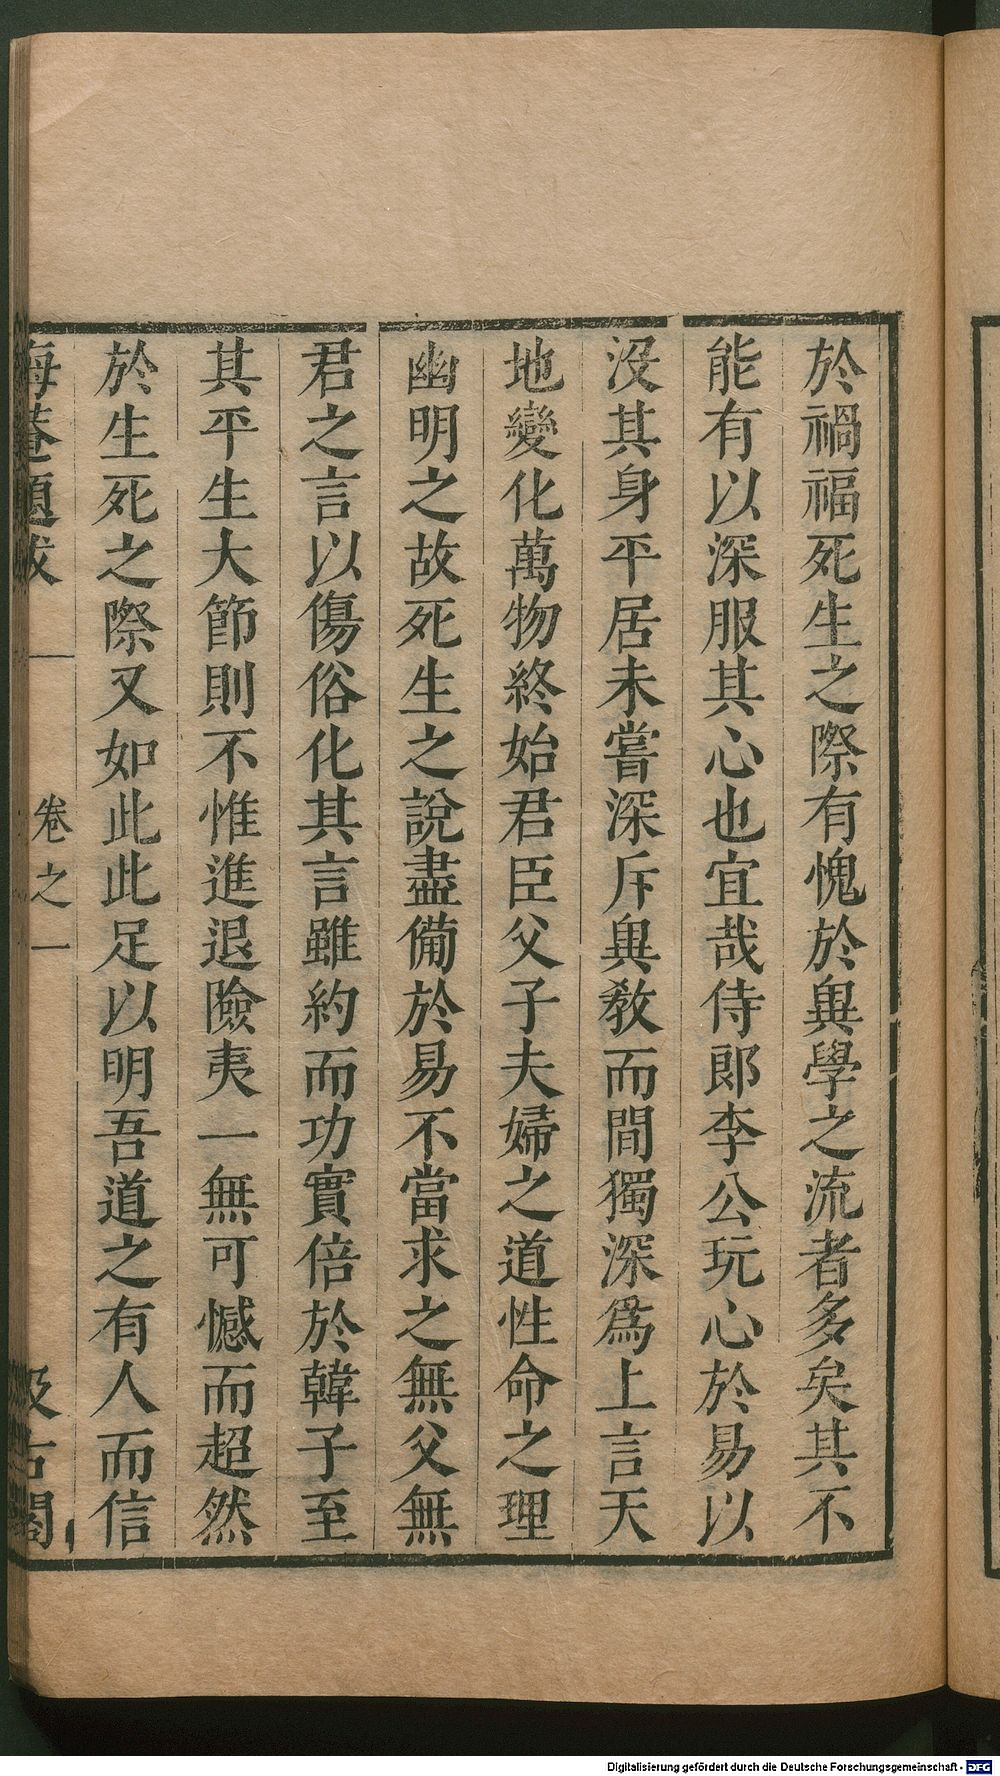 於禍福死生之際有愧於異學之流者多矣其不
能有以深服其心也宜哉侍郎李公玩心於易以
沒其身平居未嘗深斥異教而間獨深爲上言天
地變化萬物終始君臣父子夫婦之道性命之理
幽明之故死生之說盡備於易不當求之無父無
君之言以傷俗化其言雖約而功實倍於韓子至
其平生大節則不惟進退險夷一無可憾而超然
於生死之際又如此此足以明吾道之有人而信
晦菴題跋 卷之一 汲古閣
Digitalisierung gefördert durch die Deutsche Forschungsgemeinschaft - DFG